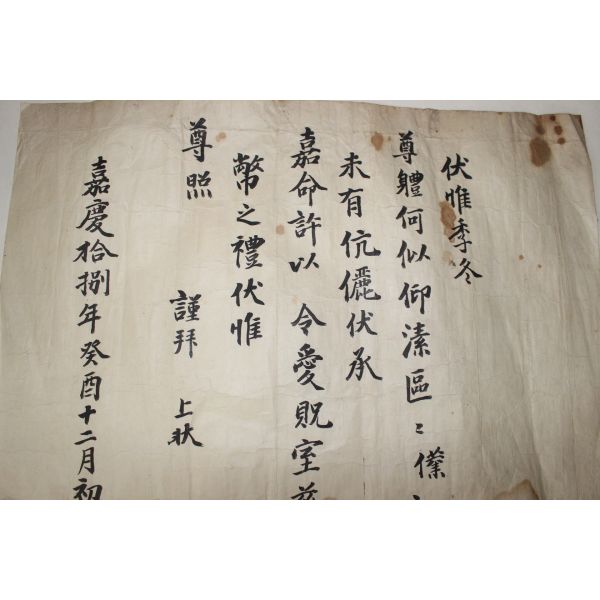 伏惟季冬
尊軆何似仰溸區〻僕
未有伉儷伏承
嘉命許以 令愛貺室玆
幣之禮伏惟
尊照
謹拜 上狀
嘉慶拾捌年癸酉十二月初